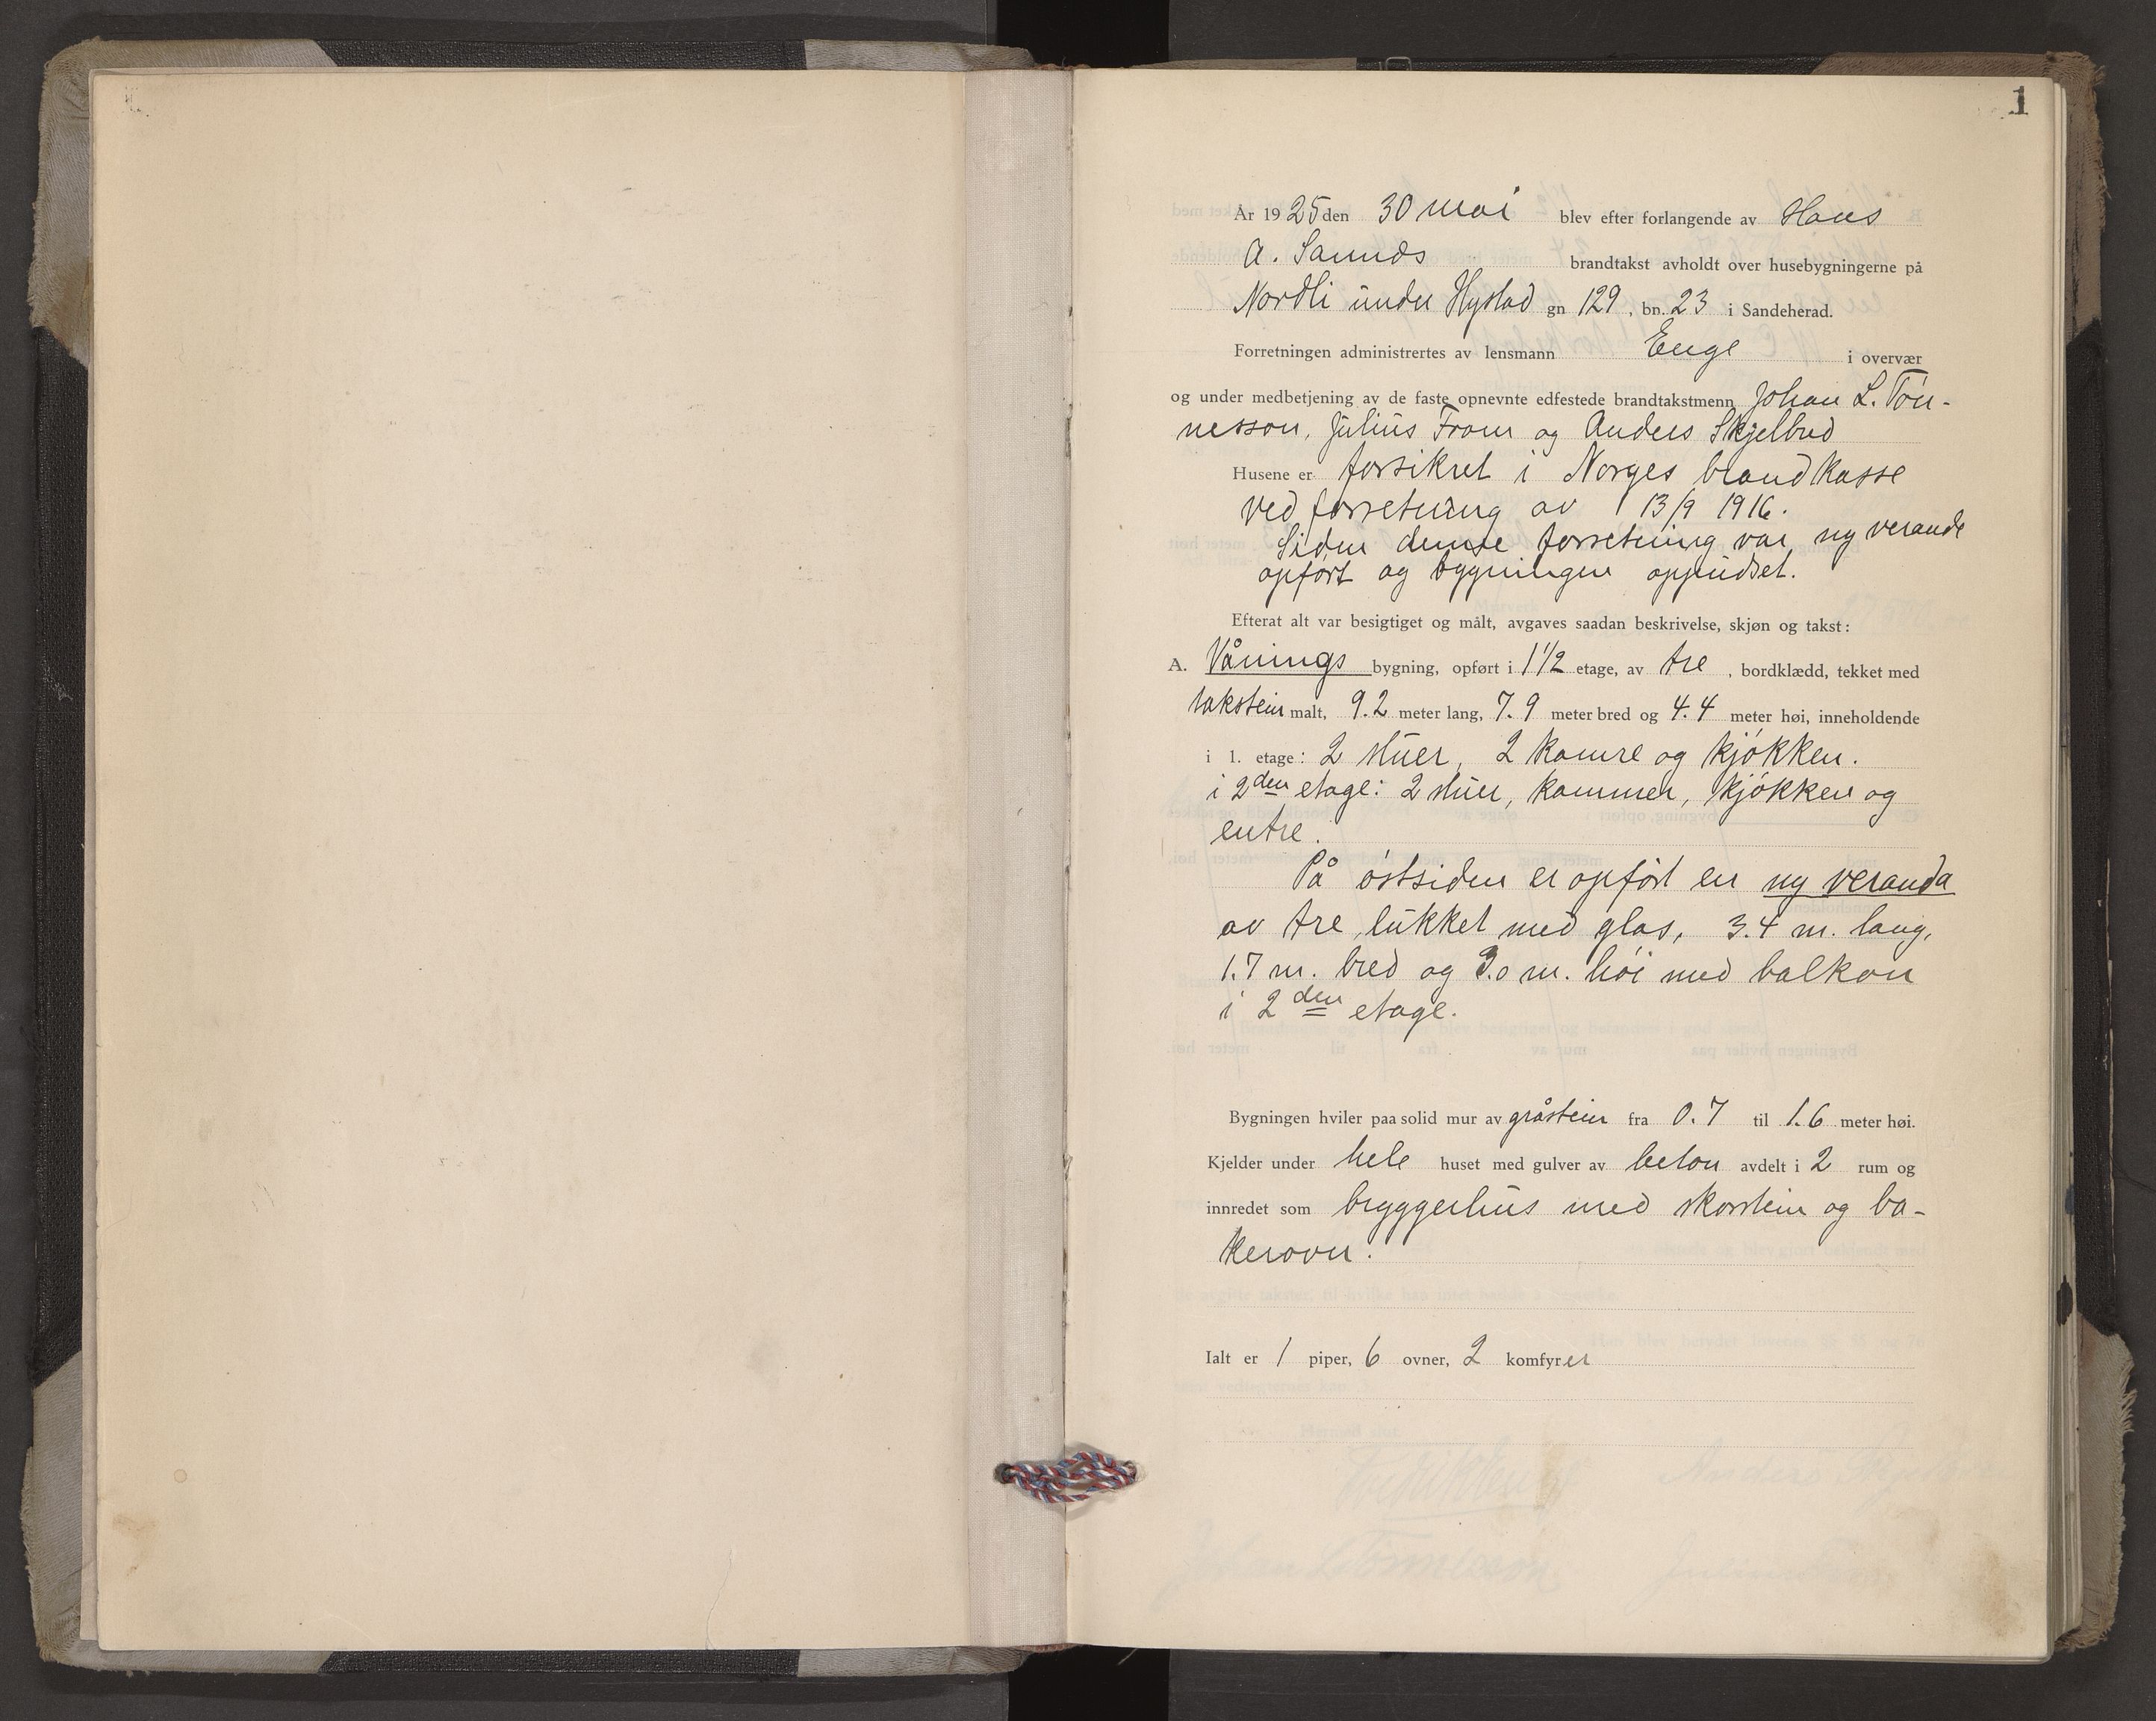 1
År 1925 den 30 mai blev efter forlangende av Hans
A. Sannes brandtakst avholdt over husebygningerne på
Nordli under Hystad gn 129, bn. 23 i Sandeherad.
Forretningen administrertes av lensmann Enge i overvær
og under medbetjening av de faste opnevnte edfestede brandtakstmenn Johan L. Tøn-
nesson, Julius Fram og Anders Skjelbred
Husene er forsikret i Norges brandkasse
ved forretning av 13/9 1916.
Siden denne forretning var ny verande
opført og bygningen oppudset.
Efterat alt var besigtiget og målt, avgaves saadan beskrivelse, skjøn og takst:
A. Vånings bygning, opført i 1 1/2 etage, av tre, bordklædd, tekket med
takstein malt, 9.2 meter lang, 7.9 meter bred og 4.4 meter høi, inneholdende
i 1. etage: 2 stuer, 2 kamre og kjøkken.
i 2den etage: 2 stuer, kammer, kjøkken og
entre.
På østsiden er opført en ny veranda
av tre, lukket med glas, 3.4 m. lang,
1.7 m. bred og 3.0 m. høi med balkon
i 2den etage.
Bygningen hviler paa solid mur av gråstein fra 0.7 til 1.6 meter høi.
Kjelder under hele huset med gulver av beton avdelt i 2 rum og
innredet som bryggerhus med skorstein og ba-
kerovn.
Ialt er 1 piper, 6 ovner, 2 komfyrer